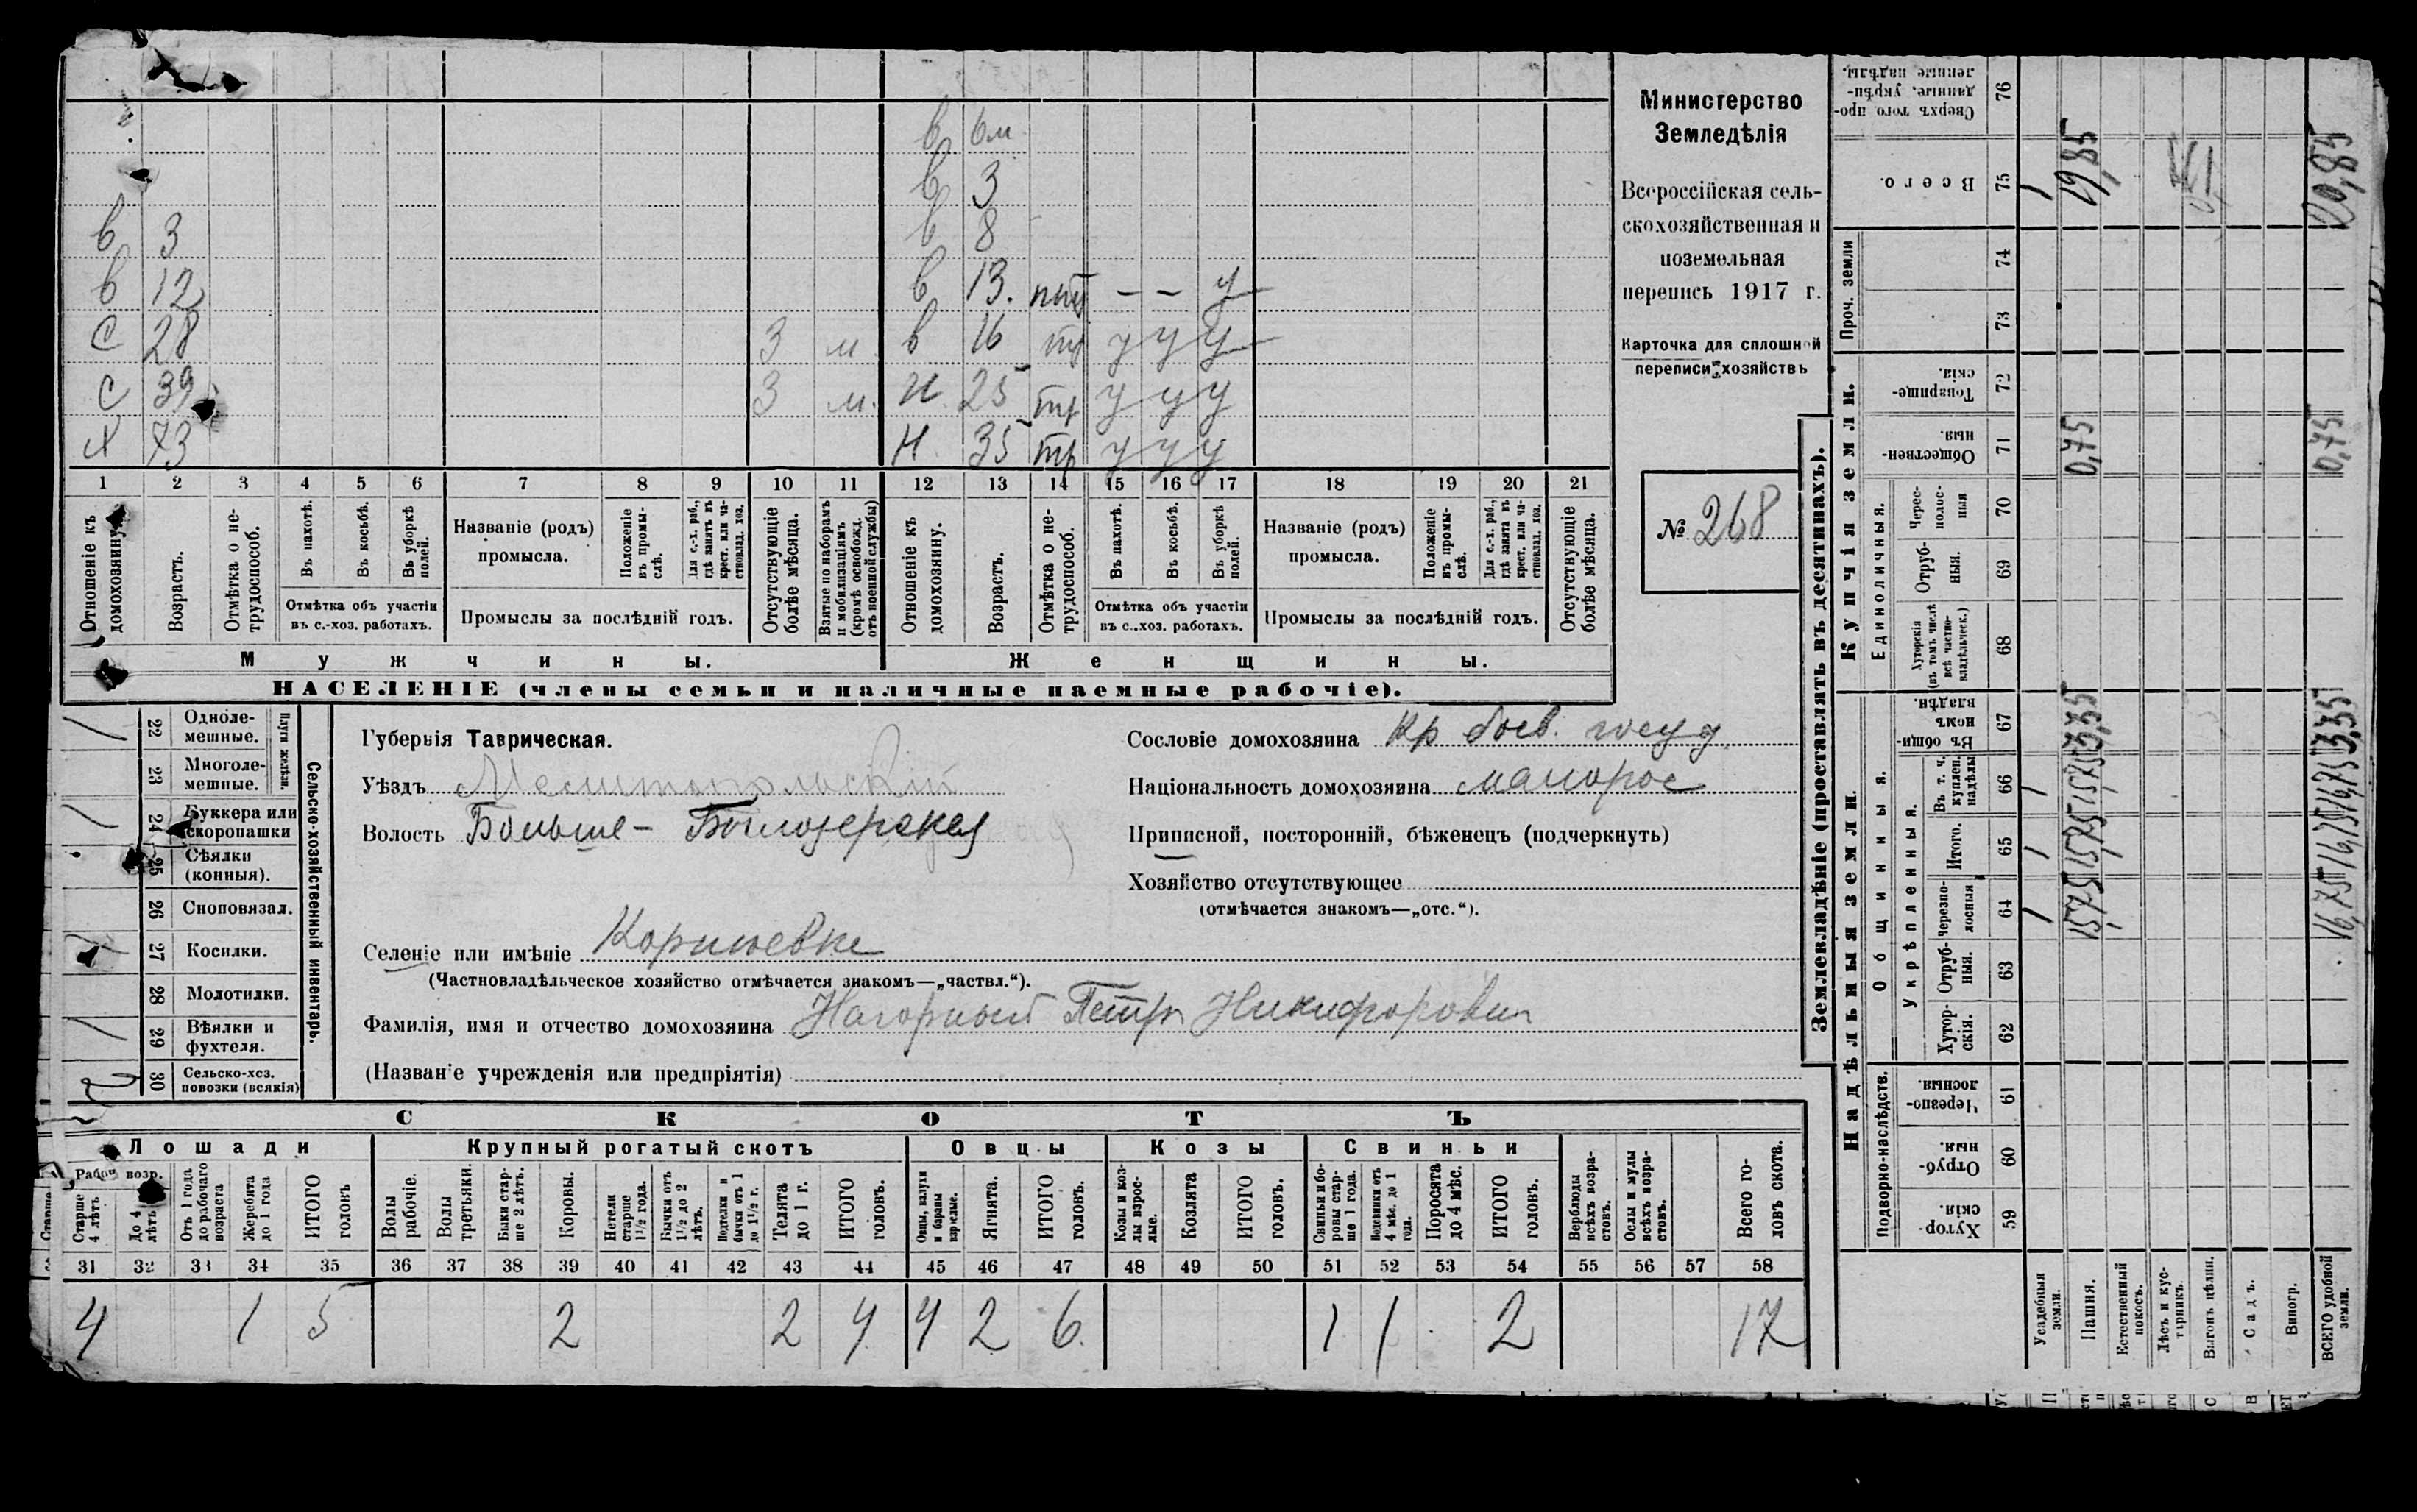 в 6м
в 3
в 3 в 8
в 12 в 13. пт — — у
С 28 3 м в 16 тр у у у
С 39 3 м. н 25 тр у у у
х 73 н 35 тр у у у
1 2 3 4 5 6 7 8 9 10 11 12 13 14 15 16 17 18 19 20 21
Отношеніе къ домохозяину.
Возрастъ.
Отмѣтка о нетрудоспособ.
Въ пахотѣ.
Въ косьбѣ.
Въ уборкѣ полей.
Отмѣтка объ участіи въ с.-хоз. работахъ.
Названіе (родъ) промысла.
Положеніе въ промыслѣ.
Для с.-х. раб., гдѣ занятъ въ крест. или частновлад. хоз.
Промыслы за послѣдній годъ.
Отсутствующіе болѣе мѣсяца.
Взятые по наборамъ и мобилизаціямъ (кромѣ освобожд. отъ военной службы)
Отношеніе къ домохозяину.
Возрастъ.
Отмѣтка о нетрудоспособ.
Въ пахотѣ.
Въ косьбѣ.
Въ уборкѣ полей.
Отмѣтка объ участіи въ с.-хоз. работахъ.
Названіе (родъ) промысла.
Положеніе въ промыслѣ.
Для с.-х. раб., гдѣ занята въ крест. или частновлад. хоз.
Промыслы за послѣдній годъ.
Отсутствующіе болѣе мѣсяца.
Мужчины. Женщины.
НАСЕЛЕНІЕ (члены семьи и наличные наемные рабочіе).
Министерство
Земледѣлія
Всероссійская сель-
скохозяйственная и
поземельная
перепись 1917 г.
Карточка для сплошной
переписи хозяйствъ
№ 268
Сельско-хозяйственный инвентарь.
Плуги желѣзн.
22 Однолемешные. 1
23 Многолемешные.
24 Буккера или скоропашки 1
25 Сѣялки (конныя).
26 Сноповязал.
27 Косилки. 1
28 Молотилки.
29 Вѣялки и фухтеля. 1
30 Сельско-хоз. повозки (всякія) 2
Губернія Таврическая.
Уѣздъ Мелитопольскій
Волость Больше-Бѣлозерская
Селеніе или имѣніе
(Частновладѣльческое хозяйство отмѣчается знакомъ—„частвл.“).
Фамилія, имя и отчество домохозяина Нагорный Петръ Никифорович
(Названіе учрежденія или предпріятія)
Сословіе домохозяина кр бов. госуд.
Національность домохозяина малорос
Приписной, посторонній, бѣженецъ (подчеркнуть)
Хозяйство отсутствующее
(отмѣчается знакомъ—„отс.“).
СКОТЪ
Лошади Крупный рогатый скотъ Овцы Козы Свиньи
Рабоч. возр.
Старше 4 лѣтъ
До 4 лѣтъ
Отъ 1 года до рабочаго возраста
Жеребята до 1 года
ИТОГО головъ
Волы рабочіе.
Волы третьяки.
Быки старше 2 лѣтъ.
Коровы.
Нетели старше 1½ года.
Бычки отъ 1½ до 2 лѣтъ.
Подтелки и бычки отъ 1 до 1½ г.
Телята до 1 г.
ИТОГО головъ.
Овцы, валухи и бараны взрослые.
Ягнята.
ИТОГО головъ.
Козы и козлы взрослые.
Козлята
ИТОГО головъ.
Свиньи и боровы старше 1 года.
Подсвинки отъ 4 мѣс. до 1 года.
Поросята до 4 мѣс.
ИТОГО головъ.
Верблюды всѣхъ возрастовъ.
Ослы и мулы всѣхъ возрастовъ.
Всего головъ скота.
31 32 33 34 35 36 37 38 39 40 41 42 43 44 45 46 47 48 49 50 51 52 53 54 55 56 57 58
4 1 5 2 2 4 4 2 6 1 1 2 17
Землевладѣніе (проставлять въ десятинахъ).
Надѣльныя земли.
Купчія земли.
Проч. земли
Подворно-наслѣдств.
Общинныя.
Укрѣпленныя.
Единоличныя.
59 Хуторскія
60 Отрубныя.
61 Черезполосныя.
62 Хуторскія.
63 Отрубныя.
64 Черезполосныя
65 Итого.
66 Въ т. ч. куплен. надѣлы
67 Въ общинномъ владѣн.
68 Хуторскія (въ томъ числѣ всѣ частновладѣльческ.)
69 Отрубныя.
70 Черезполосныя
71 Общественныя.
72 Товарищескія.
73
74
75 Всего.
76 Сверхъ того проданные, укрѣпленные надѣлы.
Усадебныя земли. 1 1 1 1
Пашня. 15,75 15,75 15,75 3,35 0,75 19,85
Естественный покосъ.
Лѣсъ и кустарникъ.
Выгонъ цѣлин.
Садъ.
Виногр.
ВСЕГО удобной земли. 16,75 16,75 16,75 3,35 0,75 20,85